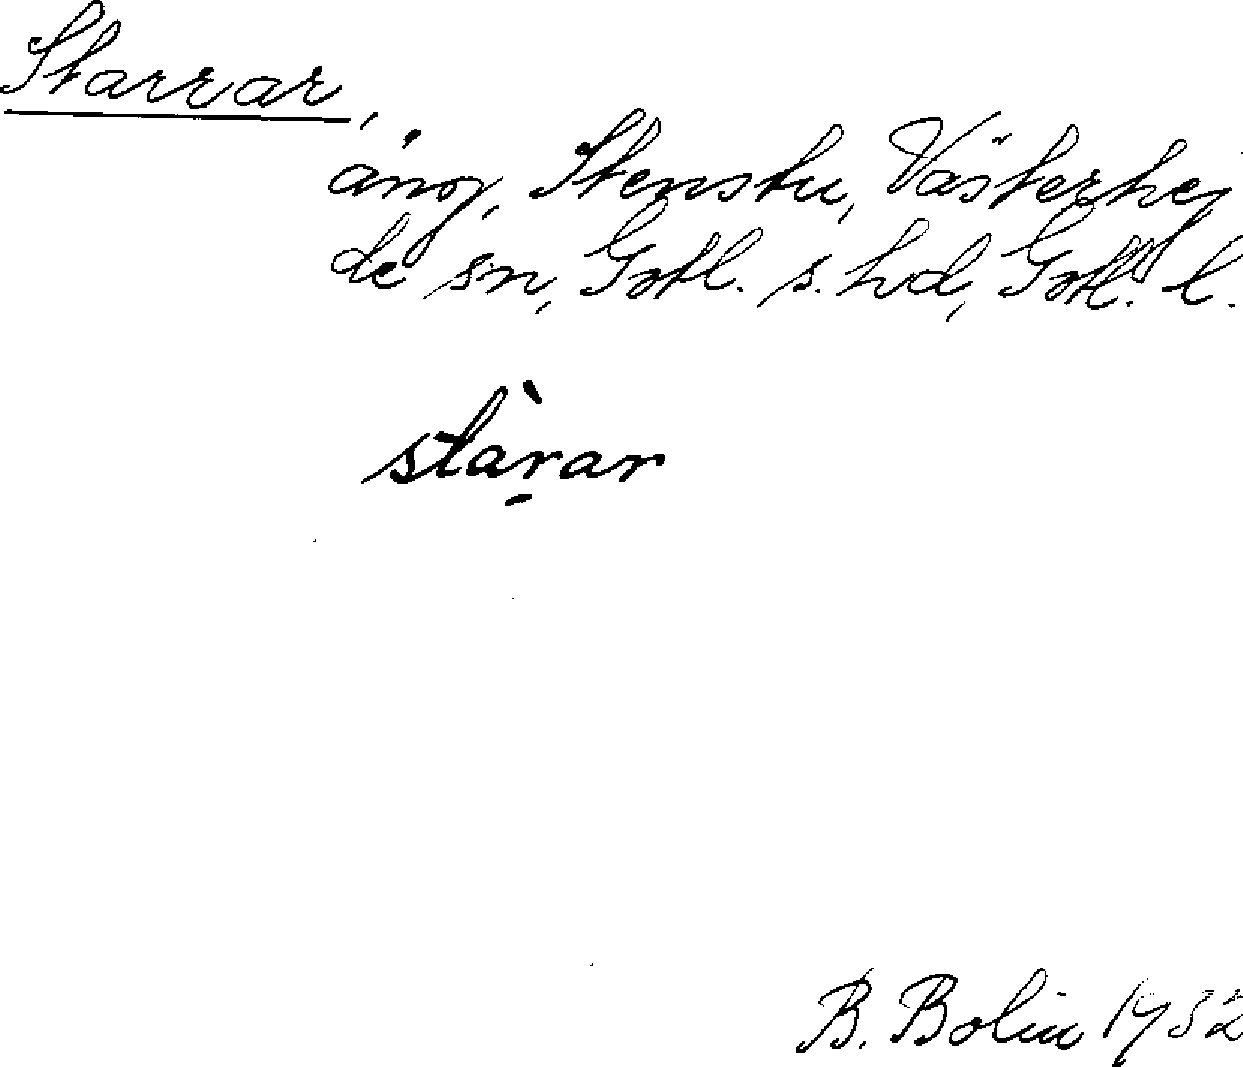 Starrar,
äng, Stenstu, Västerhej
de sn, Gotl. s. hd, Gotl. l.
stàr̠ar
B. Bolin 1932